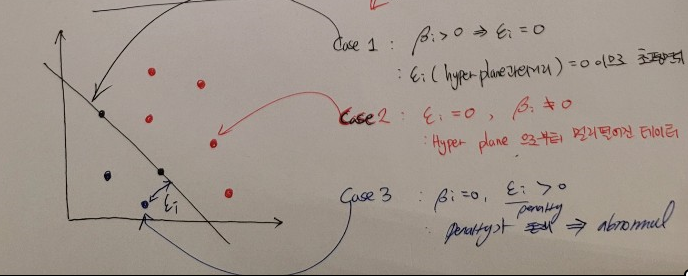 Case 1 : βi > 0 ⇒ εi = 0
: εi ( hyper plane과의거리 ) = 0 이므로
Case 2 : εi = 0 , βi ≠ 0
: Hyper plane 으로부터 멀리떨어진 데이터
εi
Case 3 : βi = 0, εi > 0
penalty
: penalty가 ⇒ abnormal